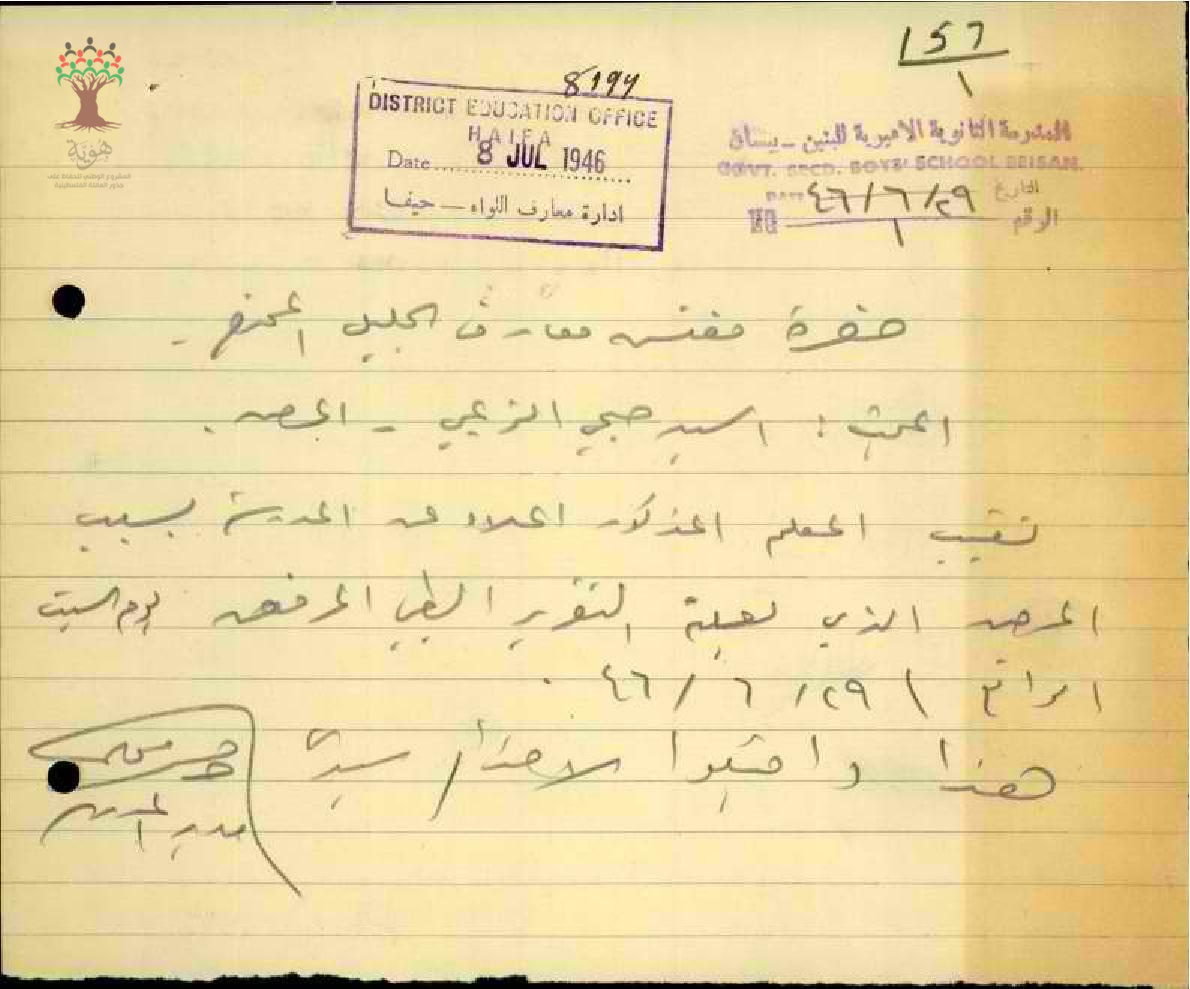 157
8194
DISTRICT EDUCATION OFFICE
HAIFA
Date 8 JUL 1946
ادارة معارف اللواء — حيفا
المدرسة الثانوية الاميرية للبنين - بيسان
GOVT. SECD. BOYS' SCHOOL BEISAN.
DATE ٤٦/٦/٢٩ التاريخ
NO الرقم
هوية
المشروع الوطني للحفاظ على
جذور العائلة الفلسطينية
حضرة مفتش معارف الجليل المحترم .
البحث : السيد صبحي الزعبي - المرض .
تغيب المعلم المذكور اعلاه عن المدرسة بسبب
المرض الذي التقرير الطبي المرفق يوم السبت
الواقع ٤٦/٦/٢٩ .
هذا واقبلوا الاحترام سيدي
مدير المدرسة